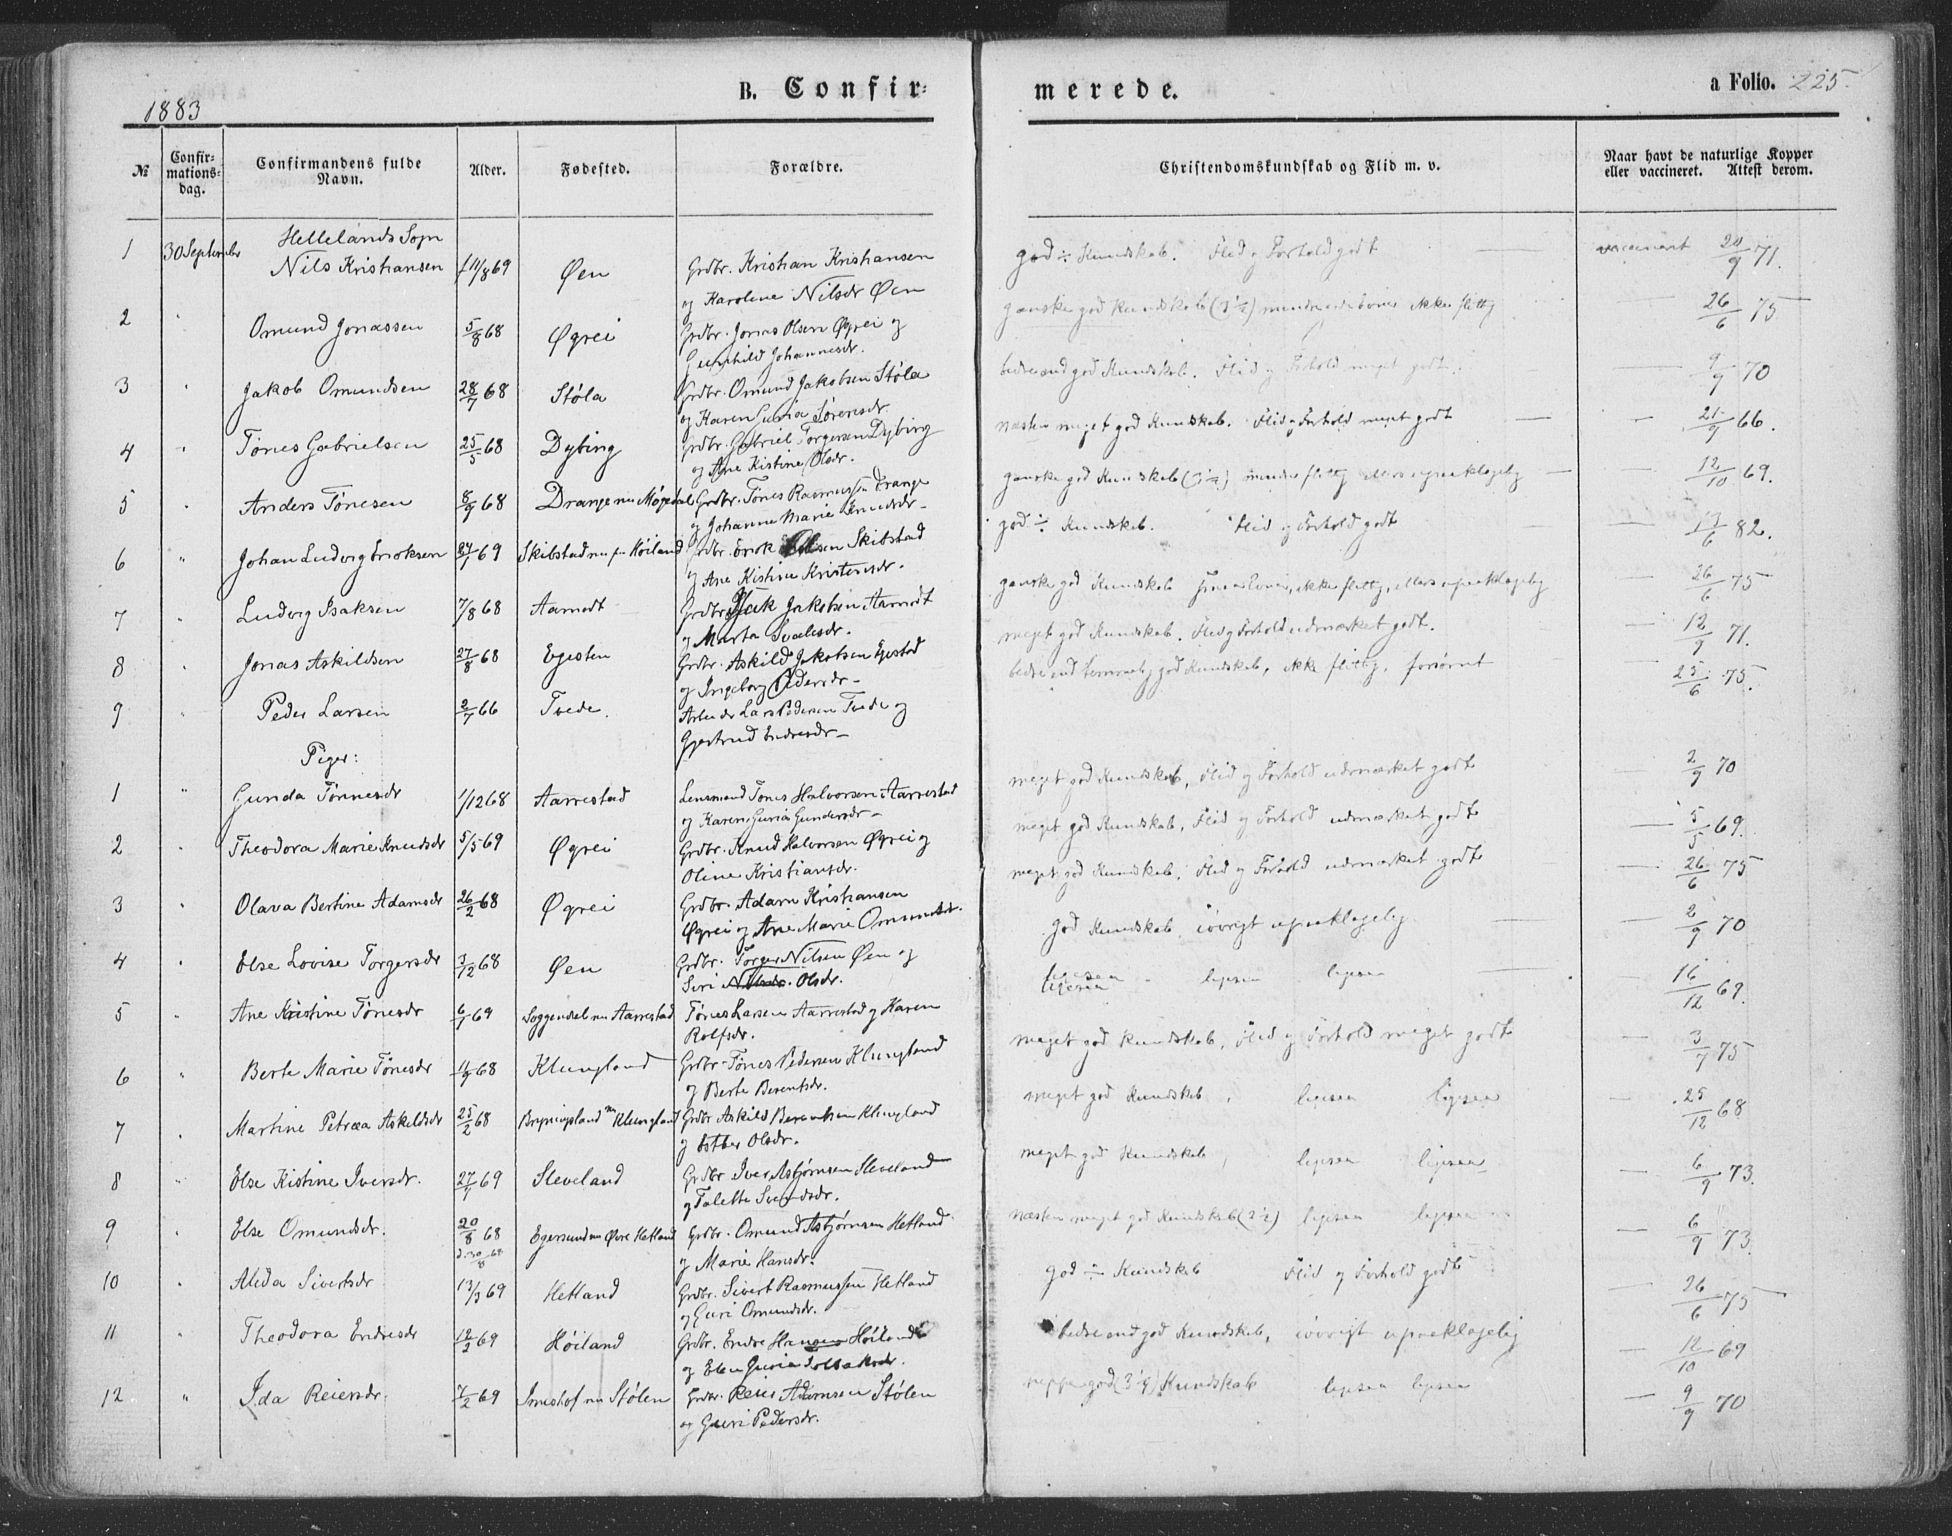 1883
B. Confir-
merede.
a Folio. 225.
№
Confir-
mations-
dag.
Confirmandens fulde
Navn.
Alder.
Fødested.
Forældre.
Christendomskundskab og Flid m. v.
Naar havt de naturlige Kopper
eller vaccineret. Attest derom.
Hellelands Sogn
1 30 September Nils Kristiansen 11/8 69 Øen Grdbr. Kristian Kristiansen
og Karoline Nilsdr Øen
god ÷ Kundskab. Flid og Forhold godt — vaccineret 20/9 71.
2 " Omund Jonassen 5/8 68 Øgrei Grdbr. Jonas Olsen Øgrei og
Gunhild Johannesdr.
ganske god Kundskab (3½) ikke flittig — 26/6 75
3 " Jakob Omundsen 28/7 68 Støla Grdbr. Omund Jakobsen Støla
og Karen Guria Sørensdr.
bedre end god Kundskab. Flid og Forhold meget godt. — 9/9 70
4 " Tønes Gabrielsen 25/5 68 Dybing Grdbr. Gabriel Torgersen Dybing
og Ane Kistine Olsdr.
næsten meget god Kundskab. Flid og Forhold meget godt — 21/9 66.
5 " Anders Tønesen 8/9 68 Drange nu Møgedal Grdbr. Tønes Rasmussen Drange
og Johanne Marie
ganske god Kundskab (3½) mindre flittig ellers upaaklagelig — 12/10 69.
6 " Johan Ludvig Eriksen 69 Skibstad nu Høiland Grdbr. Erik Olsen Skibstad
og Ane Kistine Kristensdr.
god ÷ Kundskab. Flid og Forhold godt — 6 82.
7 " Ludvig Isaksen 7/8 68 Aamodt Grdbr. Isak Jakobsen Aamodt
og Marta
ganske god Kundskab ikke flittig, ellers upaaklagelig — 26/6 75
8 " Jonas Askildsen 27/8 68 Egesten Grdbr. Askild Jakobsen Egestad
og Ingeborg Pedersdr.
meget god Kundskab. Flid og Forhold udmærket godt. — 12/9 71.
9 " Peder Larsen 2/7 66 Tvede. Lars Pedersen Tvede og
Gjertrud Endresdr.
bedre end god Kundskab, ikke flittig, forsømt — 25/6 75.
Piger:
1 " Gunda Tønnesdr 1/12 68 Aarrestad Lensmand Tønes Halvorsen Aarrestad
og Karen Guria Gundersdr.
meget god Kundskab, Flid og Forhold udmærket godt — 2/9 70
2 " Theodora Marie Knudsdr 5/5 69 Øgrei Grdbr. Knud Halvorsen Øgrei og
Oline Kristiansdr.
meget god Kundskab, Flid og Forhold udmærket godt — 5/5 69.
3 " Olava Bertine Adamsdr 26/2 68 Øgrei Grdbr. Adam Kristiansen
Øgrei og Ane Marie Omundsdr.
meget god Kundskab, Flid og Forhold udmærket godt — 26/6 75
4 " Else Lovise Torgersdr 3/12 68 Øen Grdbr. Torger Nilsen Øen og
Siri Olsdr.
god Kundskab, iøvrigt upaaklagelig. — 2/9 70
5 " Ane Kristine Tønesdr 69 Soggendal nu Aarrestad Tønes Larsen Aarrestad og Karen
Rolfsdr.
ligesaa ligesaa ligesaa — 16/12 69.
6 " Berte Marie Tønesdr 68 Klungland Grdbr. Tønes Pedersen Klungland
og Berte Berentsdr.
meget god Kundskab, Flid og Forhold meget godt — 3/7 75
7 " Martine Petræa Askildsdr 25/2 68 nu Klungland Grdbr Askild Berentsen Klungland
og Olsdr.
meget god Kundskab, ligesaa ligesaa — 25/12 68
8 " Else Kistine Iversdr. 69 Sleveland Grdbr Iver Asbjørnsen Sleveland
og Talette Svendsdr.
meget god Kundskab, ligesaa ligesaa — 6/9 73.
9 " Else Omundsdr. 20/8 68 Egersund nu Øvre Hetland Grdbr. Omund Asbjørnsen Hetland
og Marie Hansdr.
næsten meget god Kundskab (2½) ligesaa ligesaa — 6/9 73
10 " Alida Sivertsdr 13/3 69 Hetland Grdbr. Sivert Rasmussen Hetland
og Guri Omundsdr.
god ÷ Kundskab Flid og Forhold godt — 26/6 75
11 " Theodora Endresdr 12/2 69 Høiland Grdbr. Endre Hansen Høiland
og Elen Guria
bedre end god Kundskab, iøvrigt upaaklagelig — 12/10 69
12 " Ida Reiersdr. 7/2 69 nu Stølen Grdbr. Reier Adamsen Stølen
og Guri Pedersdr.
neppe god (3¼) Kundskab ligesaa ligesaa — 9/9 70